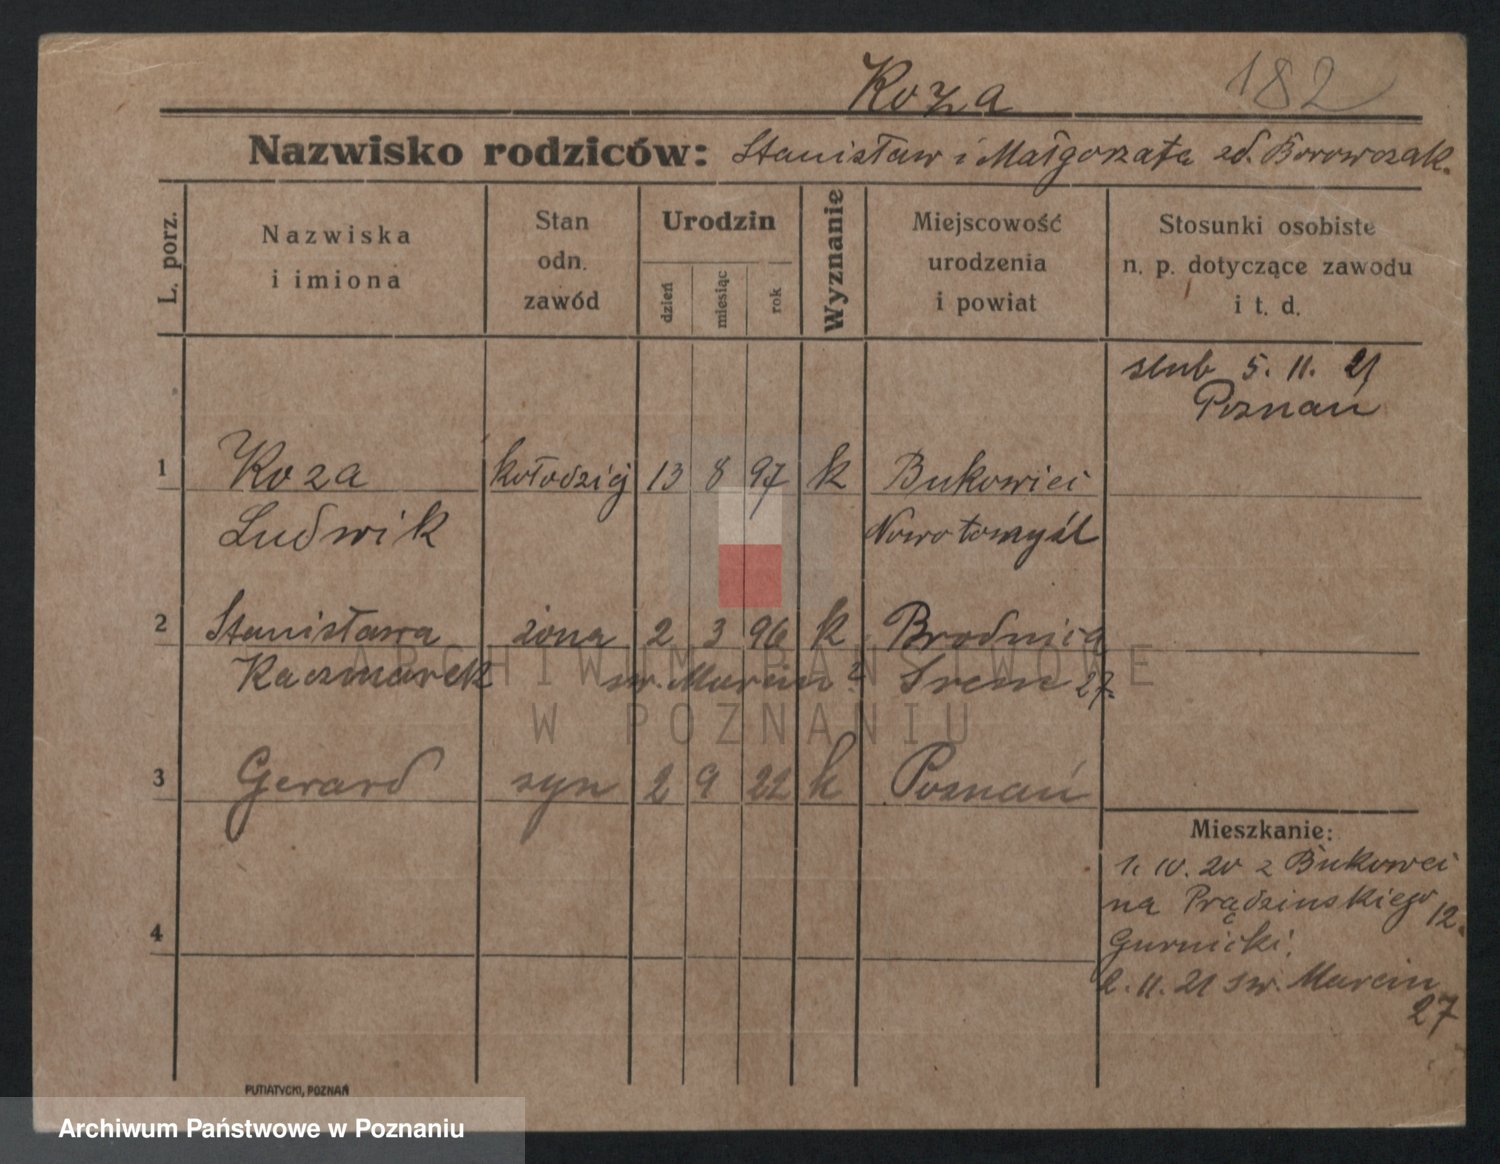 Koza 182
Nazwisko rodziców: Stanisław i Małgorzata zd. Borowczak.
L. porz.
Nazwiska
i imiona
Stan
odn.
zawód
Urodzin
dzień
miesiąc
rok
Wyznanie
Miejscowość
urodzenia
i powiat
Stosunki osobiste
n. p. dotyczące zawodu
i t. d.
slub 5. 11. 21
Poznań
1 Koza kołodziej 13 8 97 k Bukowiec
Ludwik Nowotomyśl
2 Stanisława żona 2 3 96 k Brodnica
Kaczmarek św. Marcin 27. Śrem
3 Gerard syn 2 9 22 k Poznań
4
Mieszkanie:
1. IV. 20 z Bukowci
na Prądzinskiego 12.
Gurnicki.
2. 11. 21 św. Marcin
27
PUTIATYCKI, POZNAŃ
ARCHIWUM PAŃSTWOWE
W POZNANIU
Archiwum Państwowe w Poznaniu